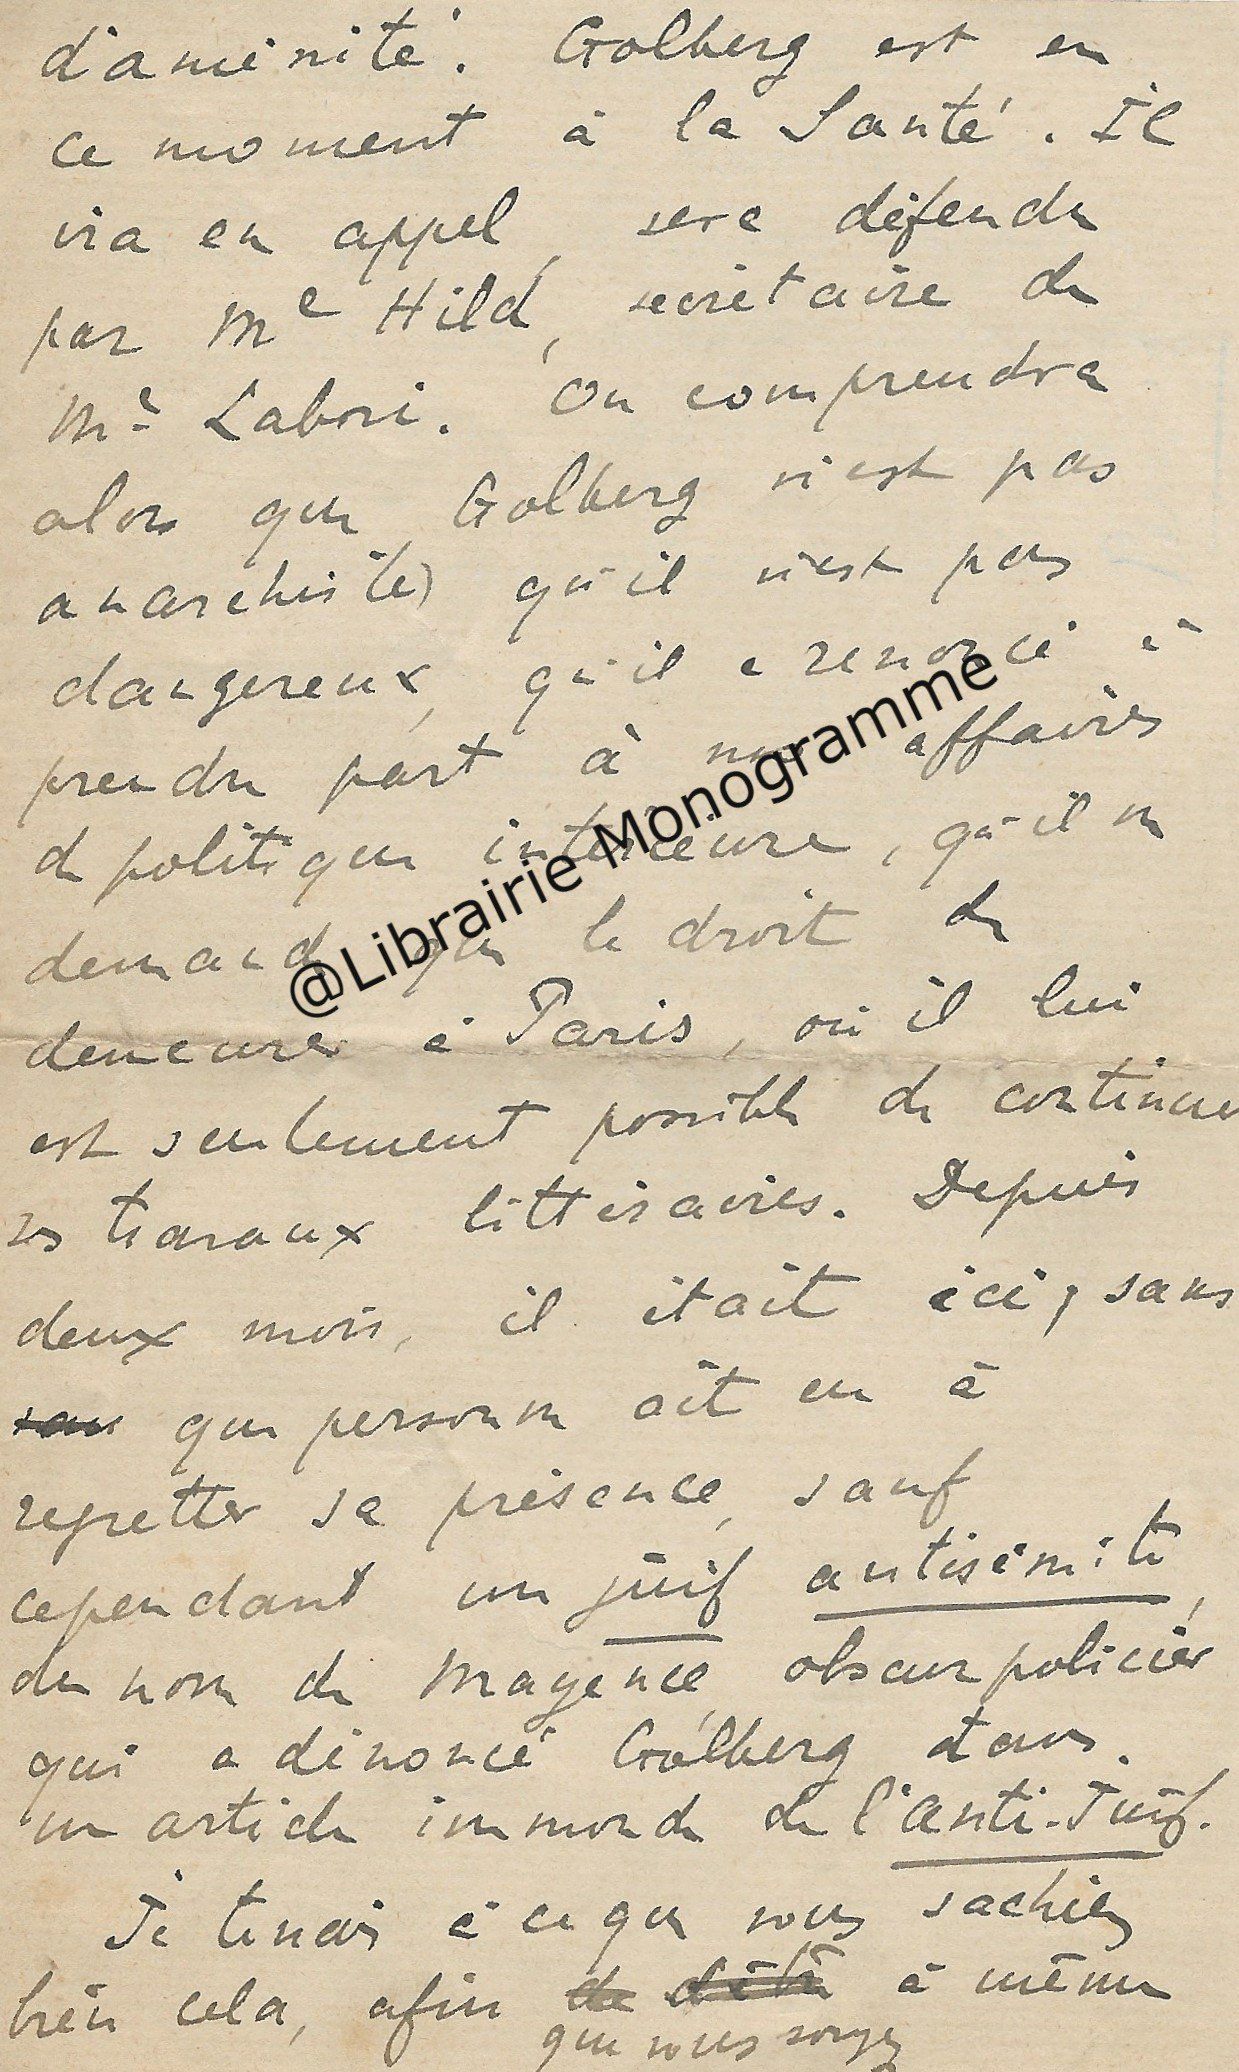 d'aménité. Golberg est en
ce moment à la Santé. Il
ira en appel, sera défendu
par Me Hild, secrétaire de
Me Labori. On comprendra
alors que Golberg n'est pas
anarchiste, qu'il n'est pas
dangereux, qu'il a renoncé à
prendre part à nos affaires
de politique intérieure, qu'il ne
demande que le droit de
demeurer à Paris, où il lui
est seulement possible de continuer
ses travaux littéraires. Depuis
deux mois, il était ici, sans
sans que personne ait eu à
regretter sa présence, sauf
cependant un juif antisémite,
du nom de Mayence, obscur policier
qui a dénoncé Golberg dans
un article immonde de l'Anti-Juif.
Je tenais à ce que vous sachiez
bien cela, afin de à même
que vous soyez
@Librairie Monogramme